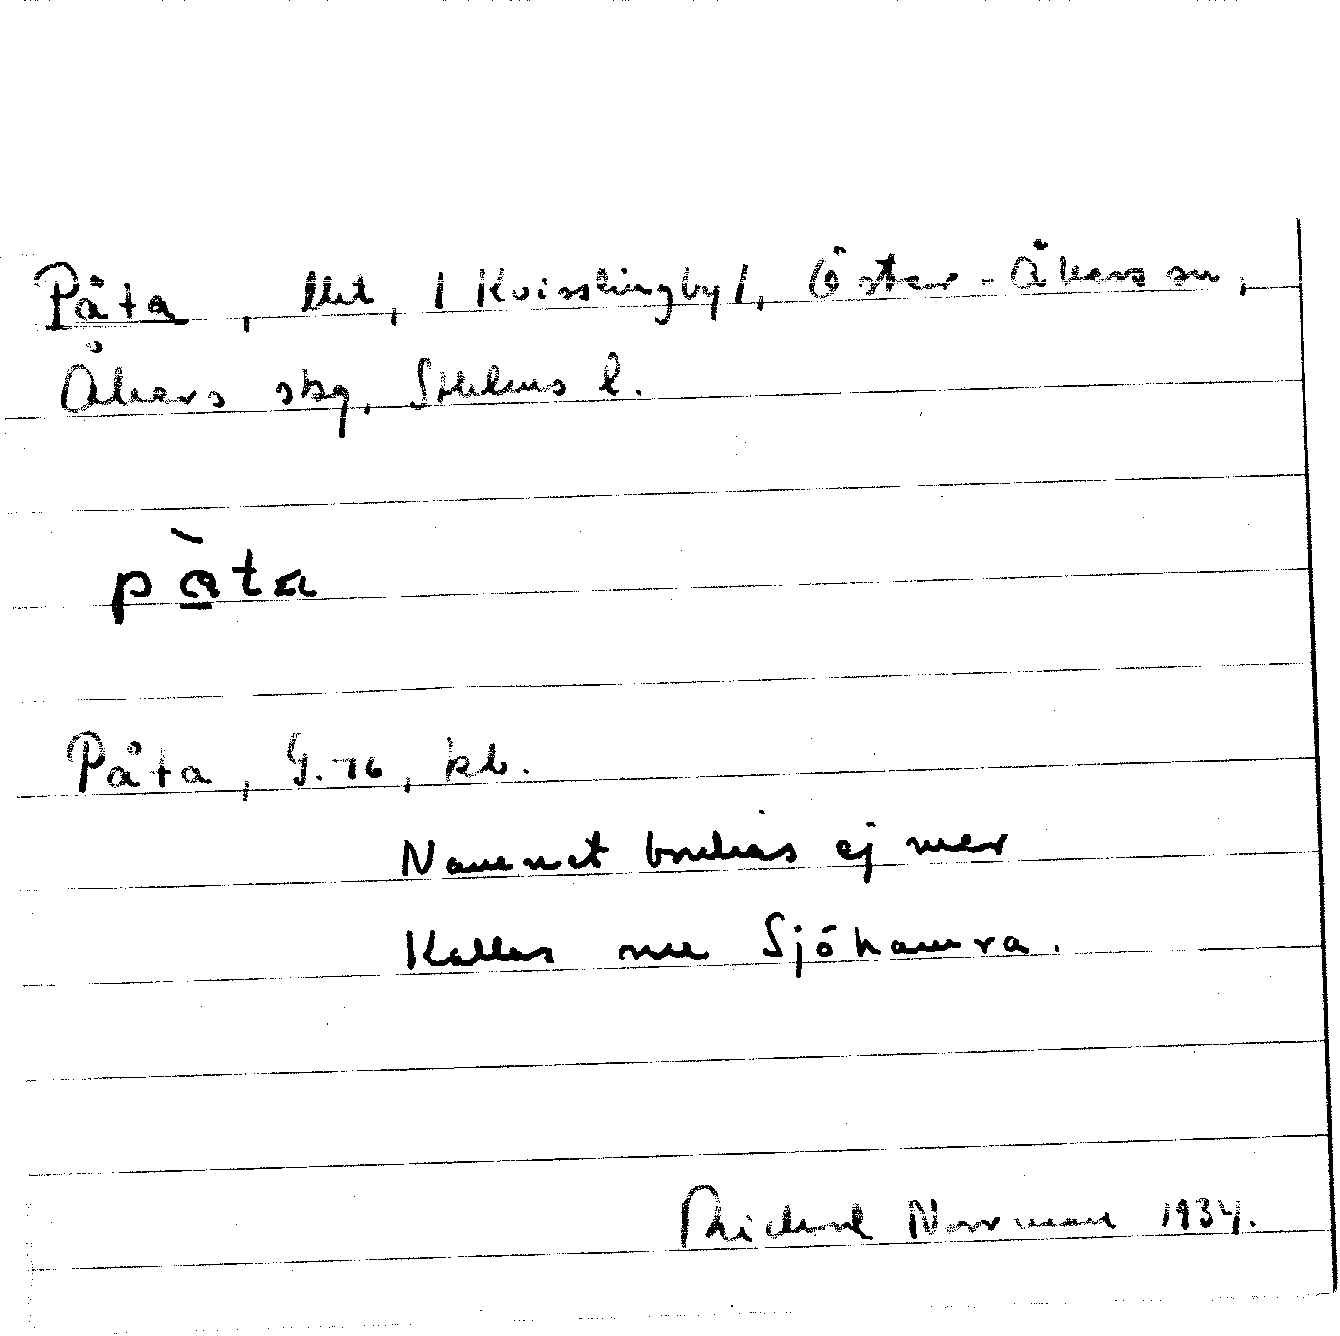 Påta, lht, / Kvisslingby /, Öster-Åkers sn,
Åkers skg, Sthlms l.
pàta
Påta, G. 76, kb.
Namnet brukas ej mer
Kallas nu Sjöhamra.
Richard Norrman 1934.